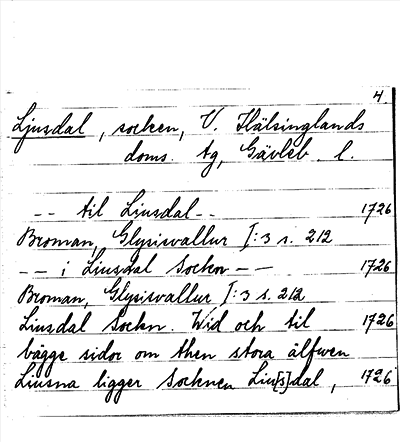 4.
Ljusdal, socken, V. Hälsinglands
doms. tg, Gävleb. l.
-- til Liusdal -- 1726
Broman, Glysisvallur I:3 s. 212
-- i Liusdal Sockn -- 1726
Broman, Glysisvallur I:3 s. 212
Liusdal Sockn. Wid och til 1726
bägge sidor om then stora älfwen
Liusna ligger Socknen Liu[s]dal, 1726